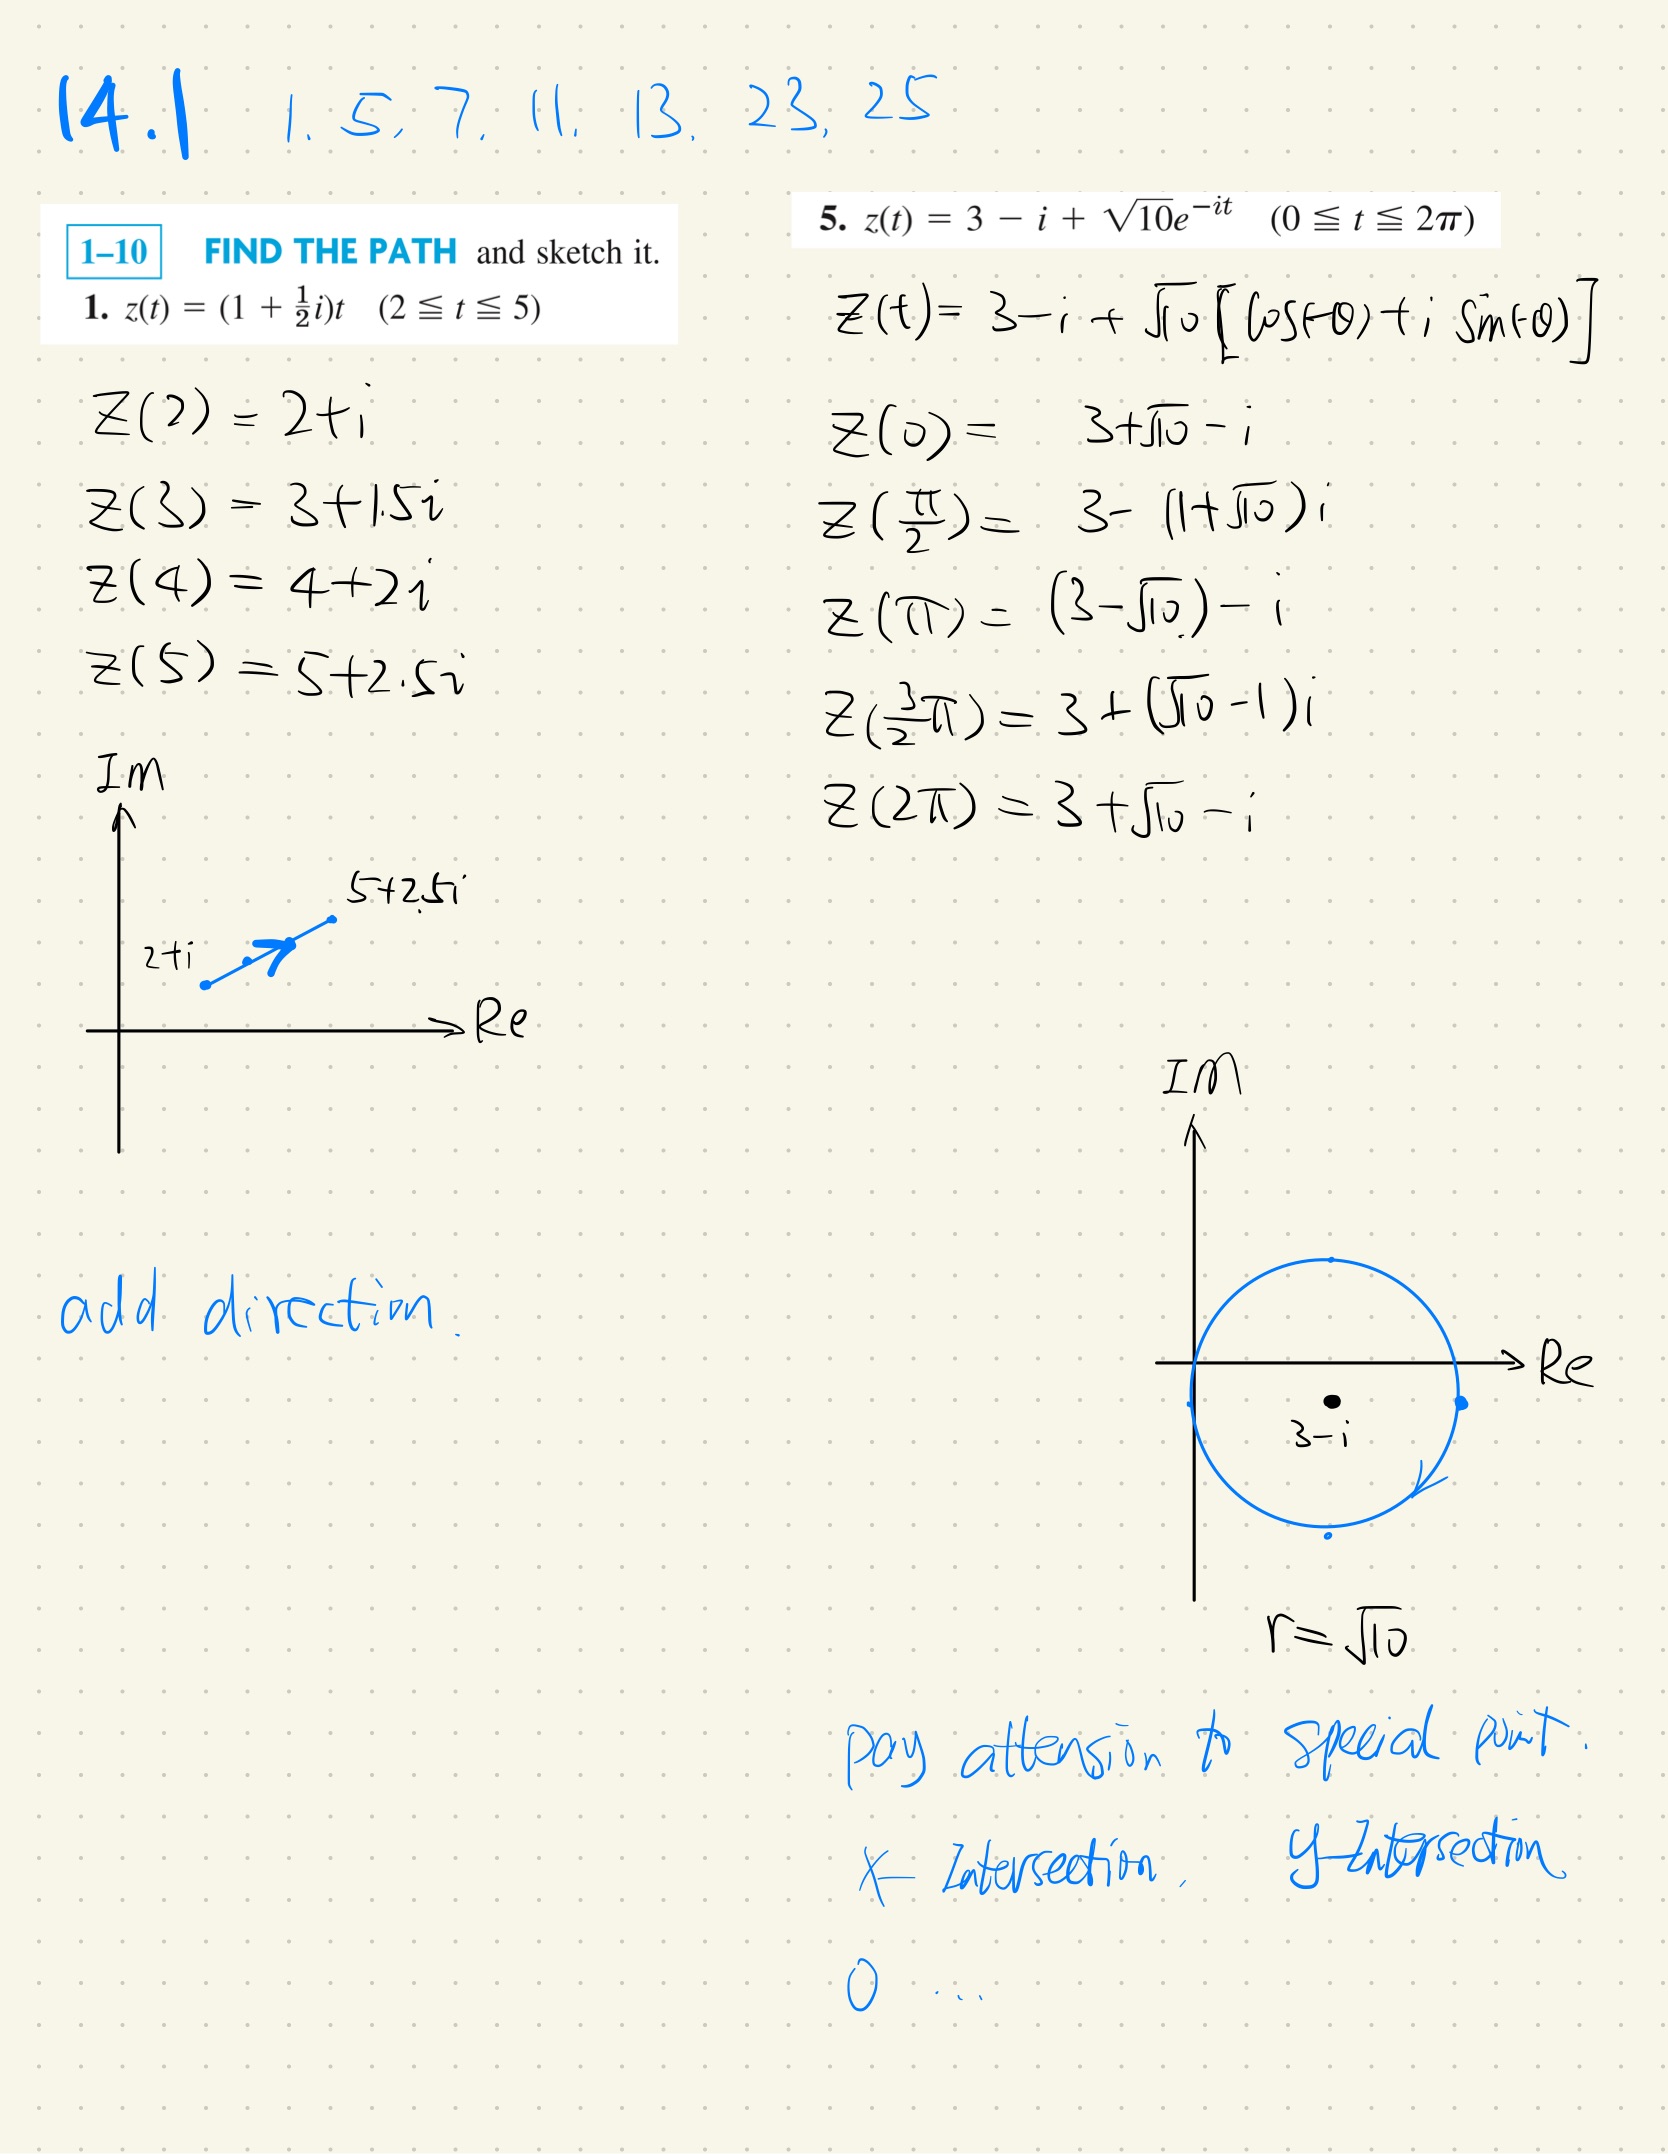 14.1 1. 5, 7. 11. 13. 23, 25
1–10 FIND THE PATH and sketch it.
1. z(t) = (1 + ½i)t (2 ≦ t ≦ 5)
Z(2) = 2+i
Z(3) = 3+1.5i
Z(4) = 4+2i
Z(5) = 5+2.5i
Im
5+2.5i
2+i
Re
add direction.
5. z(t) = 3 − i + √10e^−it (0 ≦ t ≦ 2π)
Z(t) = 3−i + √10 [Cos(−θ)+i Sin(−θ)]
Z(0) = 3+√10 − i
Z(π/2) = 3− (1+√10)i
Z(π) = (3−√10) − i
Z(3/2 π) = 3+(√10 −1)i
Z(2π) = 3+√10 − i
IM
Re
3−i
r=√10
pay attension to special point.
x− Intersection. y−Intersection
0 ...